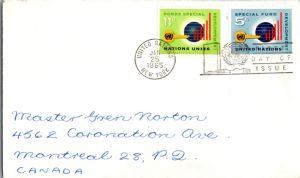 FONDS SPECIAL
NATIONS UNIES
SPECIAL FUND
5c
DEVELOPMENT
UNITED NATIONS
UNITED NATIONS
JAN
25
1965
NEW YORK
DAY OF
ISSUE
Master Gren Norton
4562 Coronation Ave.
Montreal 28, P.Q.
CANADA